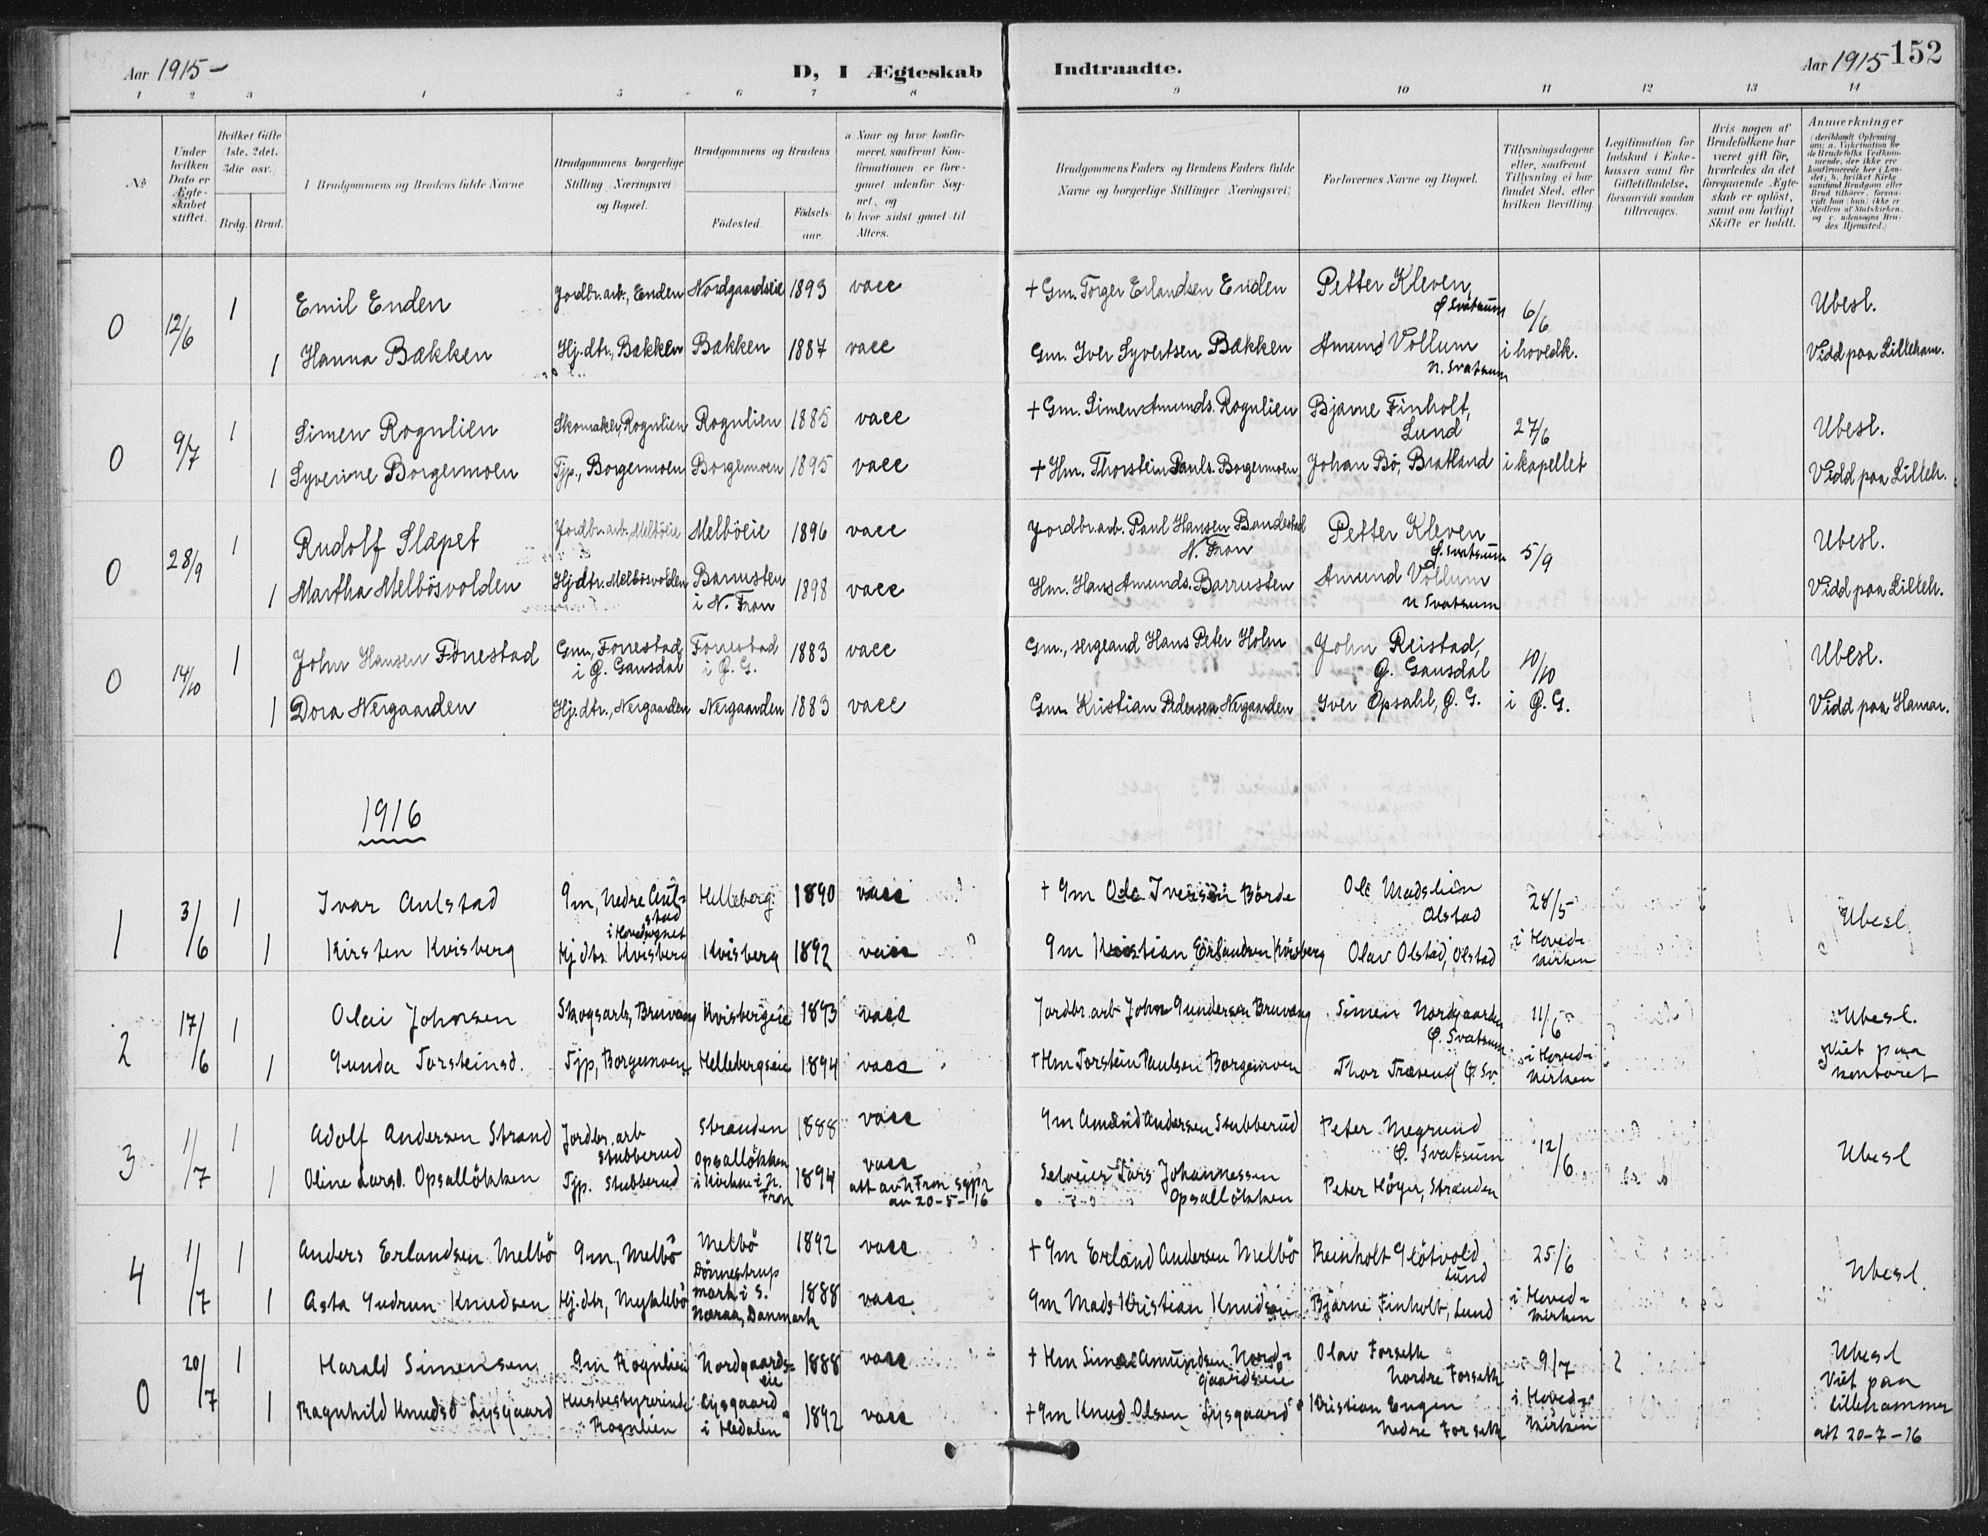 Aar 1915-
D, I Ægteskab
Indtraadte.
Aar 1915
152
1 2 3 4 5 6 7 8 9 10 11 12 13 14
No
Under hvilken Dato er Ægteskabet stiftet.
Hvilket Gifte (1ste, 2det, 3die osv.)
Brdg. Brud.
Brudgommens og Brudens fulde Navne
Brudgommens borgerlige Stilling (Næringsvei) og Bopæl.
Brudgommens og Brudens
Fødested.
Fødselsaar.
a Naar og hvor konfirmeret, saafremt Konfirmationen er foregaaet udenfor Sognet, og
b) hvor sidst gaaet til Alters.
Brudgommens Faders og Brudens Faders fulde Navne og borgerlige Stillinger (Næringsvei)
Forlovernes Navne og Bopæl.
Tillysningsdagene eller, saafremt Tillysning ei har fundet Sted, efter hvilken Bevilling.
Legitimation for Indskud i Enkekassen samt for Giftetilladelse, forsaavidt saadan tiltrænges.
Hvis nogen af Brudefolkene har været gift før, hvorledes da det foregaaende Ægteskab er opløst, samt om lovligt Skifte er holdt.
Anmærkninger
0 12/6 1 Emil Enden Jordbr.arb., Enden Nordgaardseie 1893 vacc + Gm. Torger Erlandsen Enden Petter Kleven, Ø Svatsum 6/6 Ubesl.
1 Hanna Bækken Hj.dtr., Bækken Bækken 1887 vacc Gm. Iver Syvertsen Bækken Amund Vollum n. Svatsum i hovedk. Vidd paa Lilleham.
0 9/7 1 Simen Rognlien Skomaker, Rognlien Rognlien 1885 vacc + Gm. Simen Amunds. Rognlien Bjarne Finholt, Lund 27/6 Ubesl.
1 Syverine Borgermoen Tjp., Borgermoen Borgermoen 1895 vacc + Hm. Thorstein Pauls. Borgermoen Johan Bö, Bratland i kapellet Vidd paa Lilleh.
0 28/9 1 Rudolf Slæpet Jordbr.arb. Melböeie Melböeie 1896 vacc Jordbr.arb. Paul Hansen N. Fron Petter Kleven Ø. Svatsum 5/9 Ubesl.
1 Martha Melbösvolden Hj.dtr. Melbösvolden Barrusten i N. Fron 1898 vacc Hm. Hans Amunds. Barrusten Amund Vollum n Svatsum Vidd paa Lilleh.
0 14/10 1 John Hansen Fonestad Gm., Fonestad i Ø. Gausdal Fonestad i Ø. G. 1883 vacc Gm., sergeand Hans Peter Holm John Reistad, Ø. Gausdal 10/10 Ubesl.
1 Dora Nergaarden Hj.dtr., Nergaarden Nergaarden 1883 vacc Gm. Kristian Pedersen Nergaarden Iver Opsahl, Ø. G. i Ø. G. Vidd paa Hamar.
1916
1 3/6 1 Ivar Aulstad Gm, Nedre Aulstad i Hovedsognet Helleberg 1890 vacc + Gm Ole Iversen Börde Ole Madslien Olstad 28/5 Ubesl
1 Kirsten Kvisberg Hj dtr Kvisberg Kvisberg 1892 vacc Gm Kristian Erlandsen Kvisberg Olav Olstad, Olstad i Hovedkirken
2 17/6 1 Olai Johnsen Skogsarb, Bruvang Kvisbergeie 1893 vacc Jordbr.arb John Gundersen Bruvang Simen Nordgaarden Ø. Svatsum 11/6 Ubesl.
1 Gunda Torsteinsd. Tjp, Borgermoen Hellebergseie 1894 vacc + Hm Torstein Paulsen Borgermoen Thor Træseng Ø. Sv. i Hovedkirken Viet paa kontoret
3 1/7 1 Adolf Andersen Strand Jordbr.arb Stubberud Stranden 1888 vacc Gm Amund Andersen Stubberud Peter Megrund Ø. Svatsum 12/6 Ubesl
1 Oline Larsd. Opsallökken Tjp. Stubberud Opsallökken i Kvikne i N. Fron 1894 vacc att av N Fron sgpr av 20-5-16 Selveier Lars Johannessen Opsallökken Peter Höyer, Stranden
4 1/7 1 Anders Erlandsen Melbö Gm, Melbö Melbö 1892 vacc + Gm Erland Andersen Melbö Reinholt Glötvold Lund 25/6 Ubesl
1 Asta Gudrun Knudsen Hj.dtr, Myklebö Dönnestrup mark i S. Næraa, Danmark 1888 vacc Gm Mads Kristian Knudsen Bjarne Finholt, Lund i Hovedkirken
0 20/7 1 Harald Simensen Gm Rognlien Nordgaardseie 1888 vacc + Hm Simen Amundsen Nordgaardseie Olav Forseth Nordre Forseth 9/7 Ubesl Viet paa Lillehammer
1 Ragnhild Knudsd Lysgaard Husbestyrerinde Rognlien Lysgaard i Hedalen 1892 vacc + Gm Knud Olsen Lysgaard Kristian Engen Nedre Forseth i Hovedkirken att 20-7-16